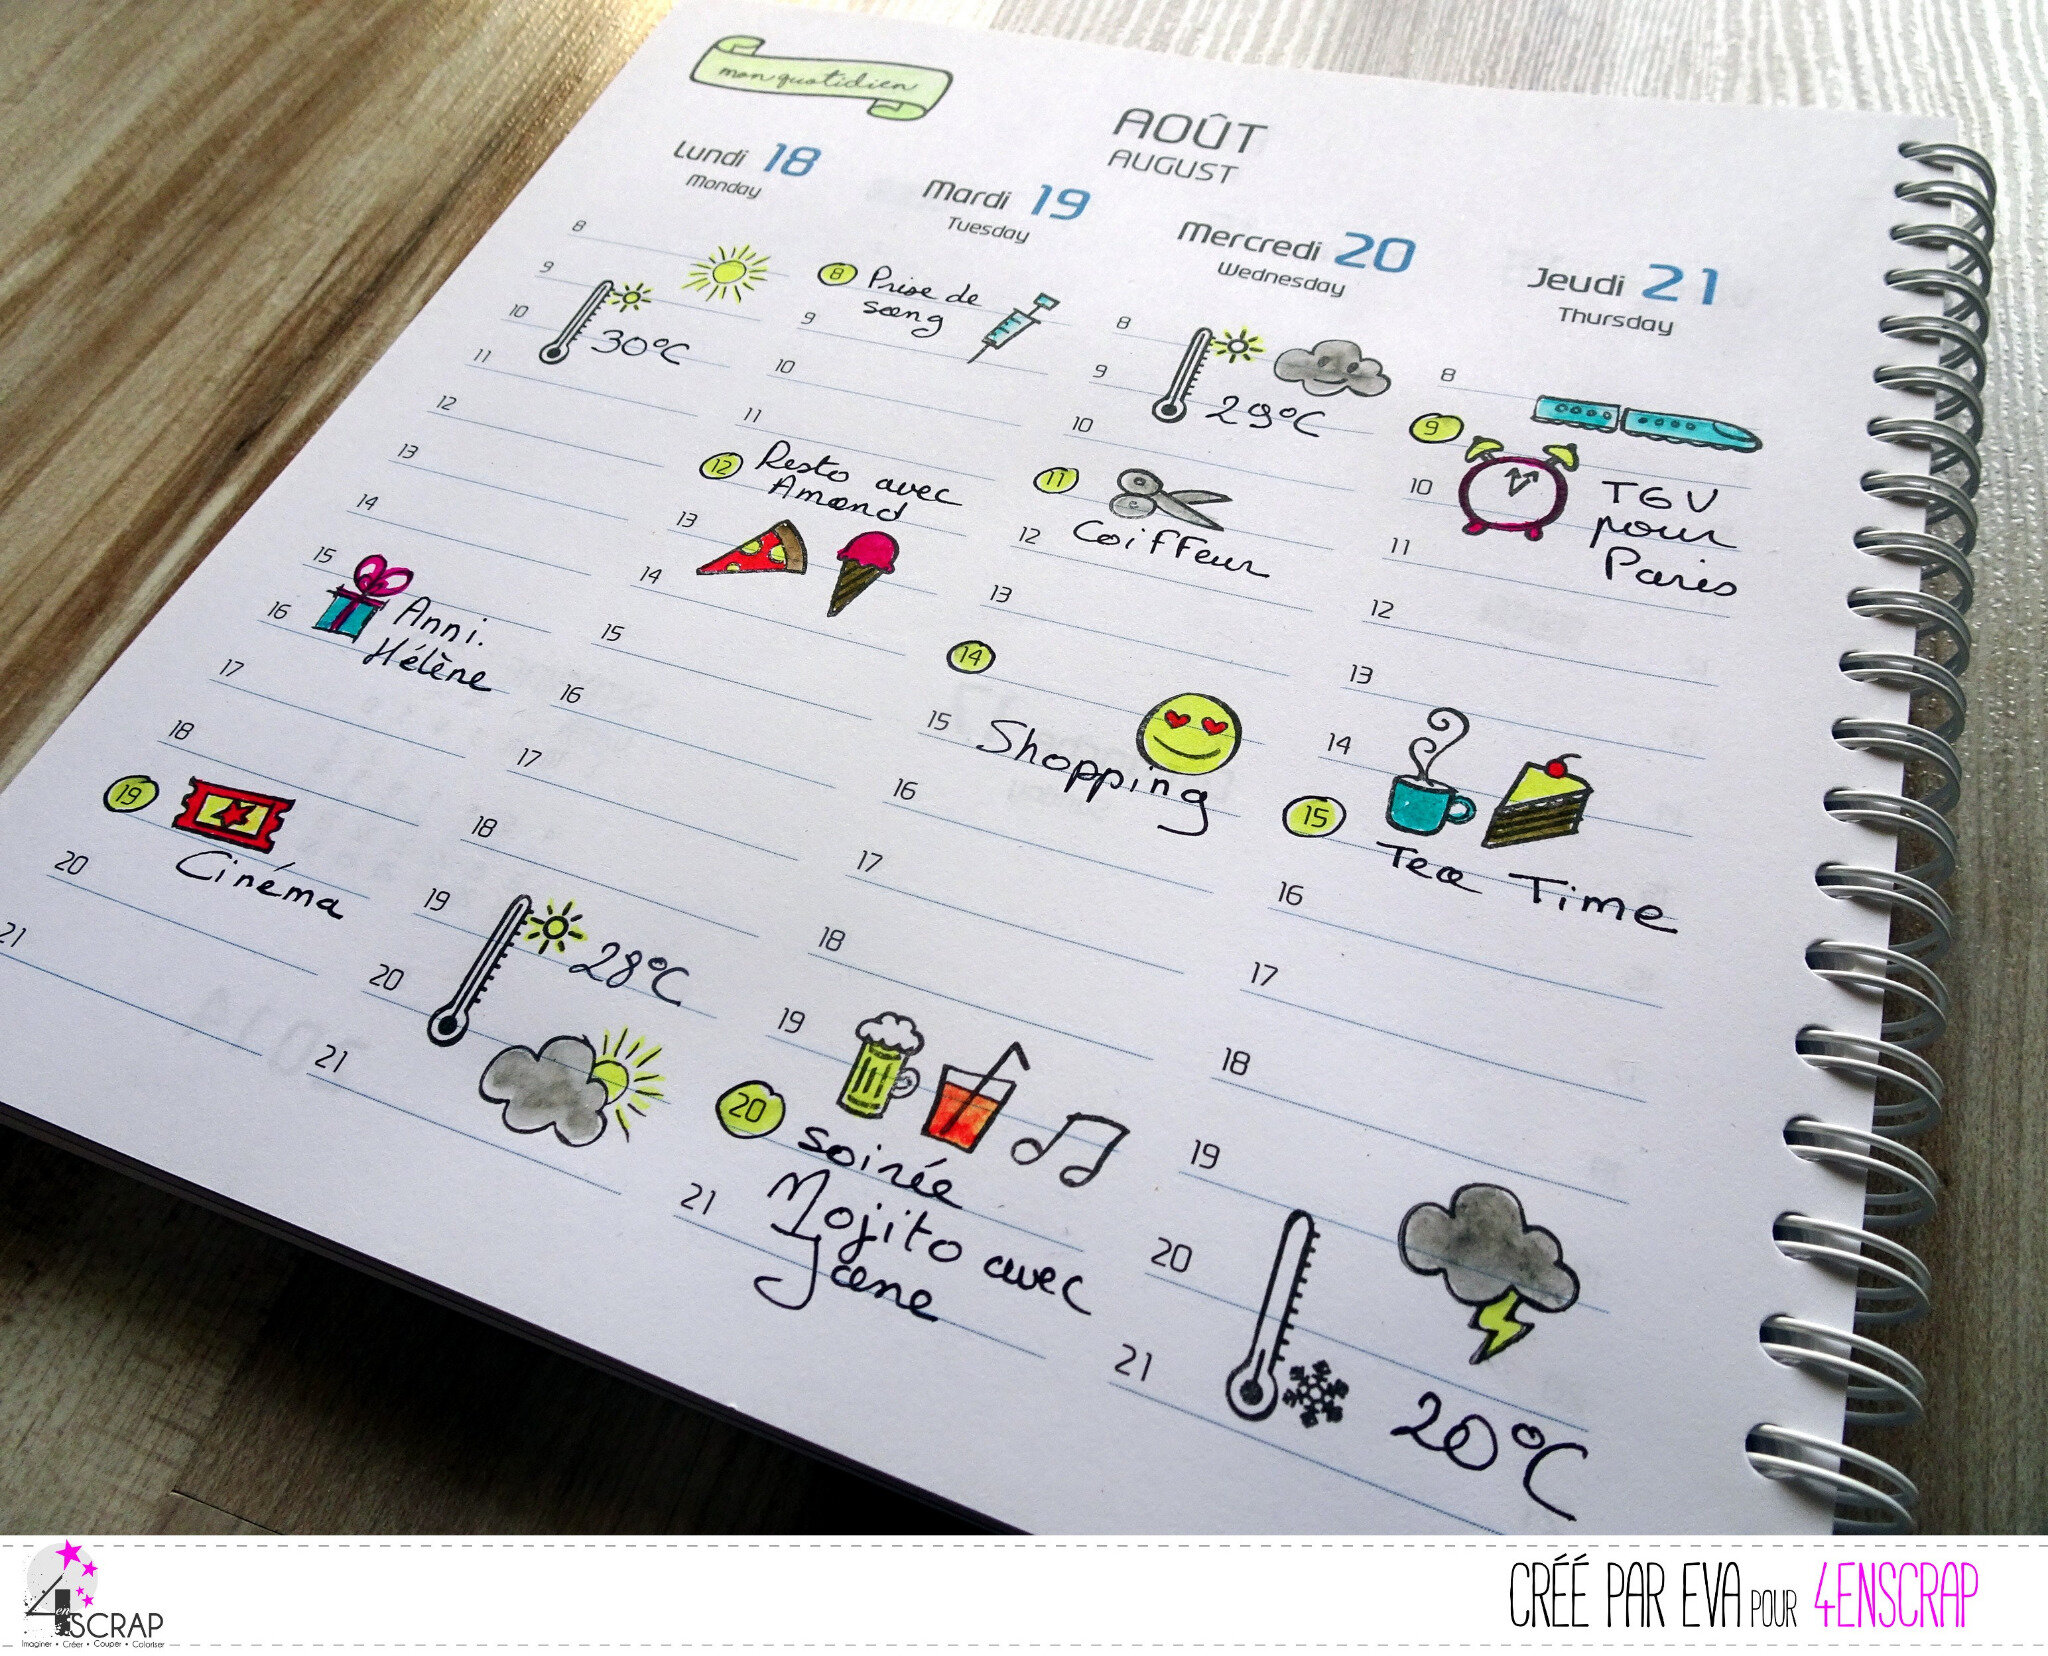 mon quotidien
AOÛT
AUGUST
Lundi 18
Monday
8
9
10
30°C
11
12
13
14
15
Anni.
Hélène
16
17
18
19
Cinéma
20
21
Mardi 19
Tuesday
8 Prise de
sang
9
10
11
12 Resto avec
Amand
13
14
15
16
17
18
19
28°C
20
21
Mercredi 20
Wednesday
8
9
29°C
10
11
Coiffeur
12
13
14
15 Shopping
16
17
18
19
20
soirée
Mojito avec
Jane
21
Jeudi 21
Thursday
8
9
10 TGV
pour
Paris
11
12
13
14
15
Tea Time
16
17
18
19
20
21
20°C
4enSCRAP
Imaginer • Créer • Couper • Coloriser
CRÉÉ PAR EVA POUR 4ENSCRAP